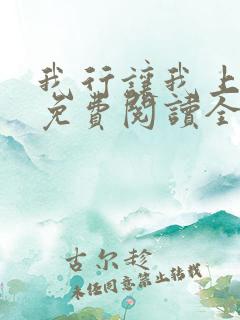 我行讓我上
免費閱讀全
古尔趁
未经同意禁止转载